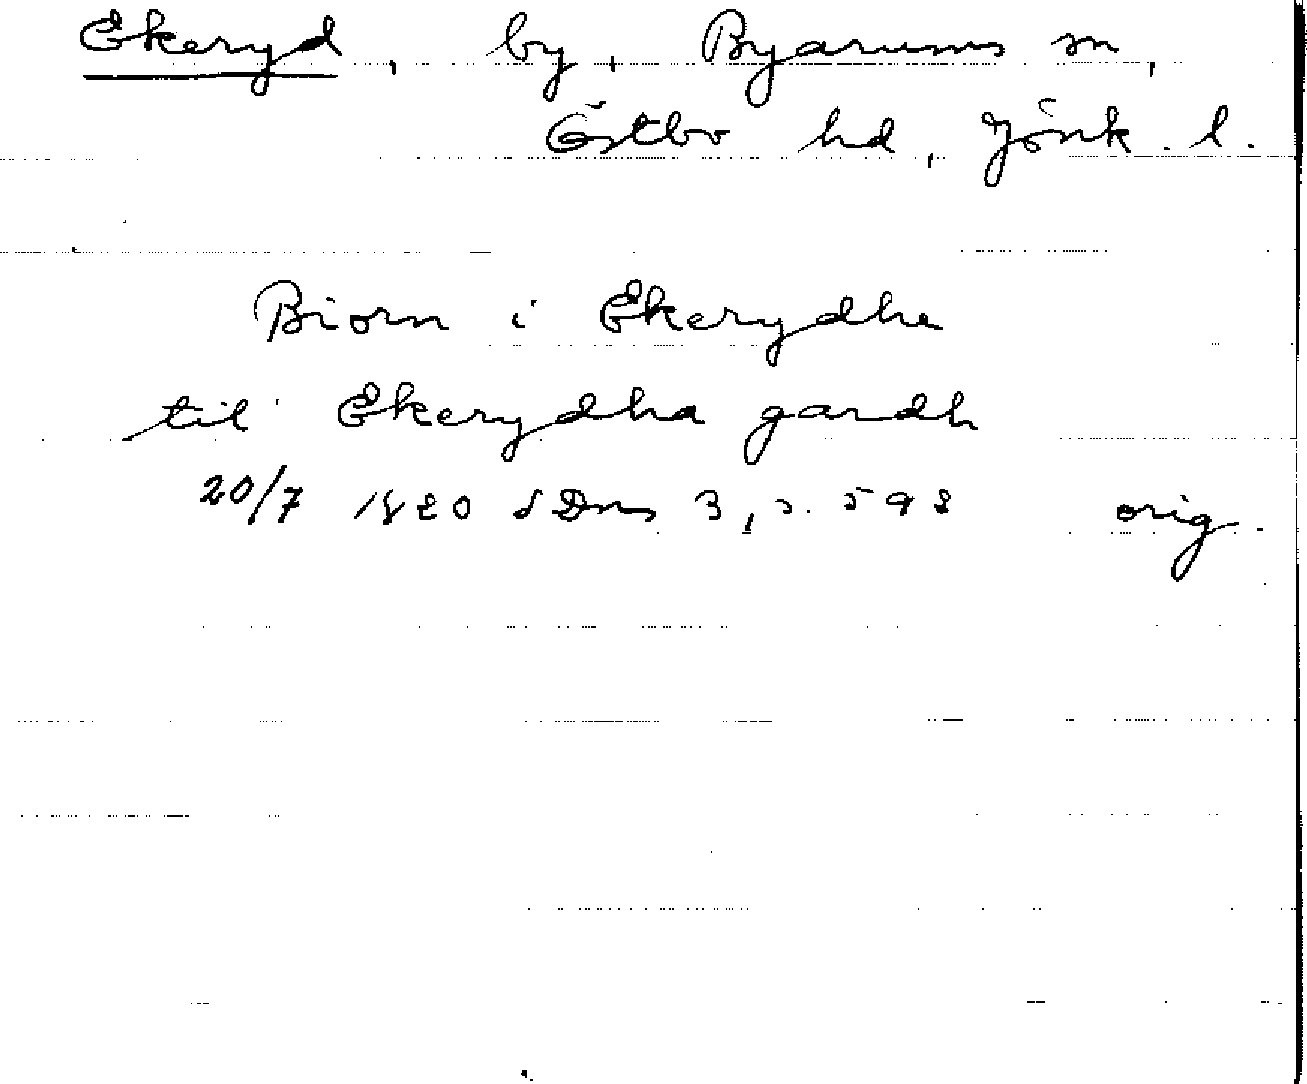 Ekeryd, by, Byarums sn,
Östbo hd, Jönk. l.
Biorn i Ekerydhe
til Ekerydha gardh
20/7 1420 SDns 3, s. 598 orig.